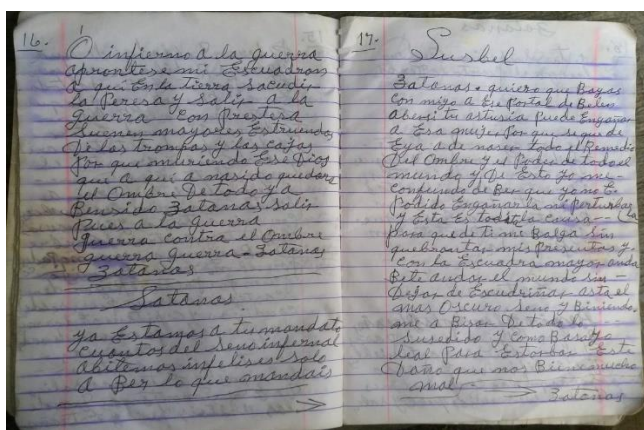 16.
O infierno a la guerra
aprontese mi Escuadron
a qui En la tierra sacudir
la Peresa y Salir a la
guerra Con Prestesa
Suenen mayores Estruendos
De las trompas y las cajas
Por que muriendo Ese Dios
que a qui a nasido quedara
el Ombre De todo ya
Bensido Satanas Salir
Pues a la Guerra
Guerra contra el Ombre
guerra Guerra = Satanas
Satanas
Satanas
ya Estamos a tu mandato
cuantos del Seno infernal
abitamos infelises solo
a Ber lo que mandais
17.
Lusbel
Satanas. quiero que Bayas
Con migo a Ese Portal de Belen
a Ber si tu asturia Puede Engañar
a Esa mujer Por que se que de
Eya a de naser todo el Remedio
Del Ombre y el Poder de todo el
mundo y De Esto yo me
confundo de Ber que yo no E
Podido Engañarla me perturba
y Esta Es toda la Causa
para que de ti me Balga Sin
quebrantar mis Presentes y
con la Escuadra mayor anda
Bete andar el mundo sin
Dejar de Escudriñar asta el
mas Oscuro Seno y Biniendo
me a Bisar De todo lo
Susedido y Como Basayo
leal Para Estorbar Este
Daño que nos Biene mucho
mal
Satanas